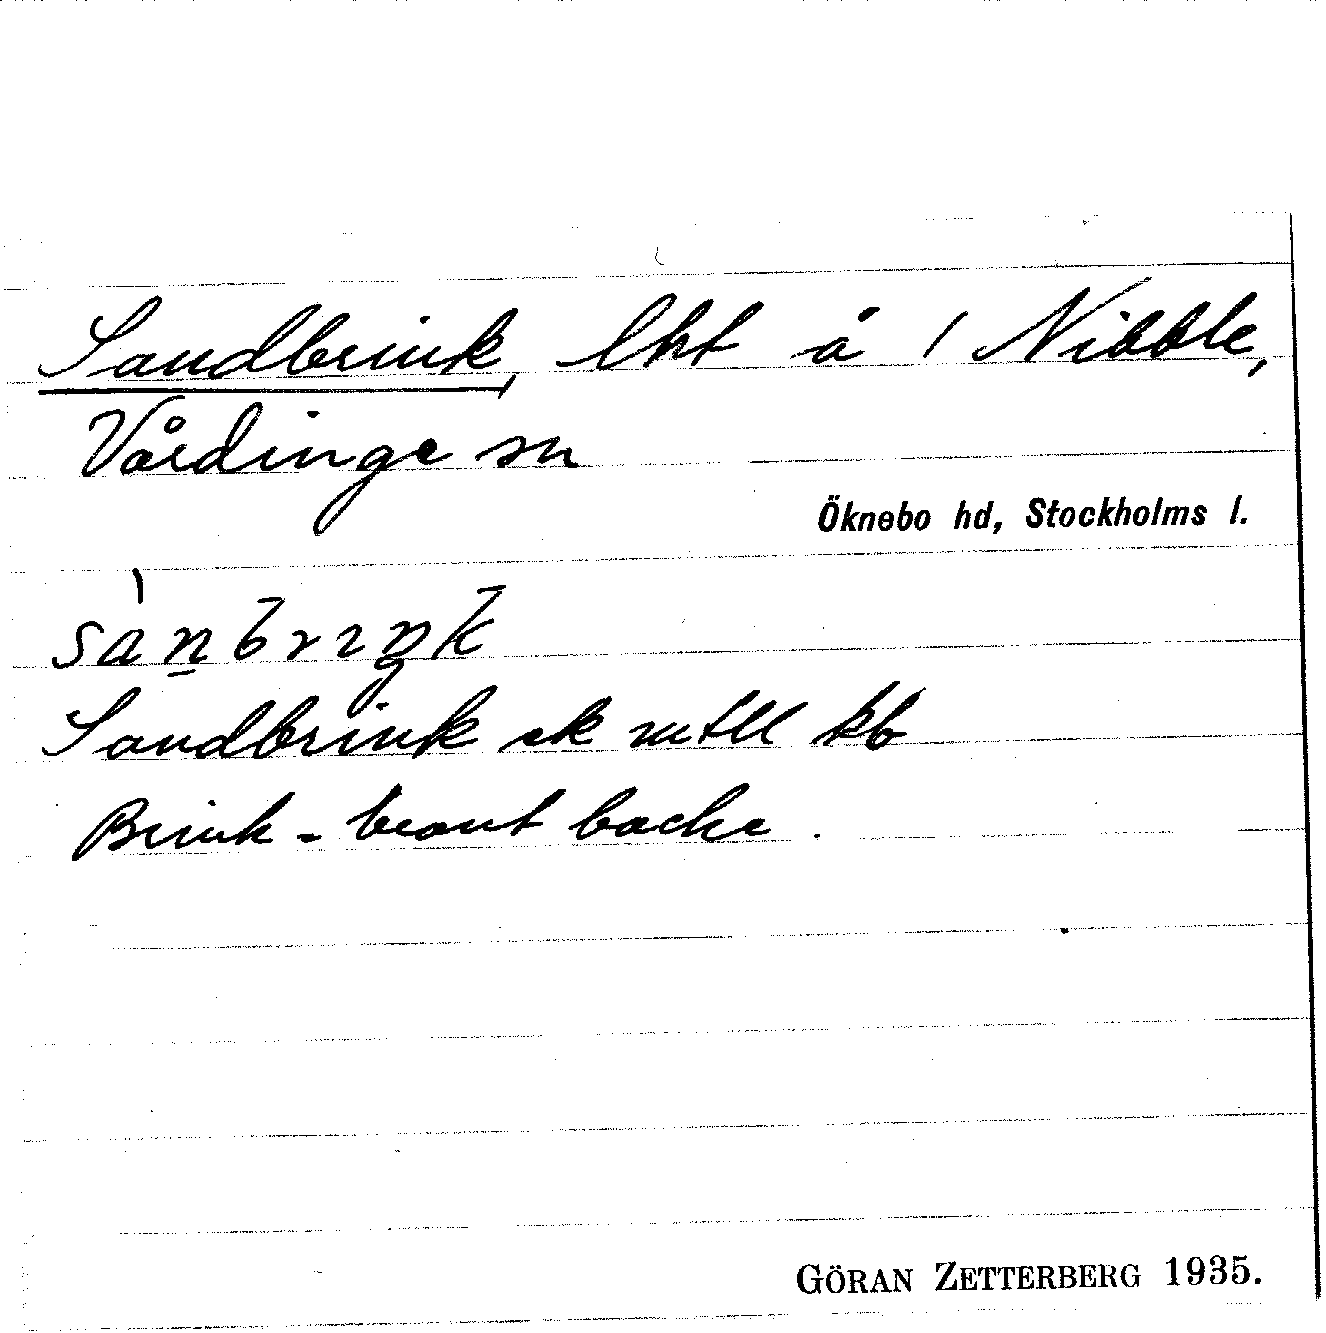 Sandbrink, lht å 1 Nibble,
Vårdinge sn
Öknebo hd, Stockholms l.
Sandbrink ek
Brink = brant backe.
GÖRAN ZETTERBERG 1935.